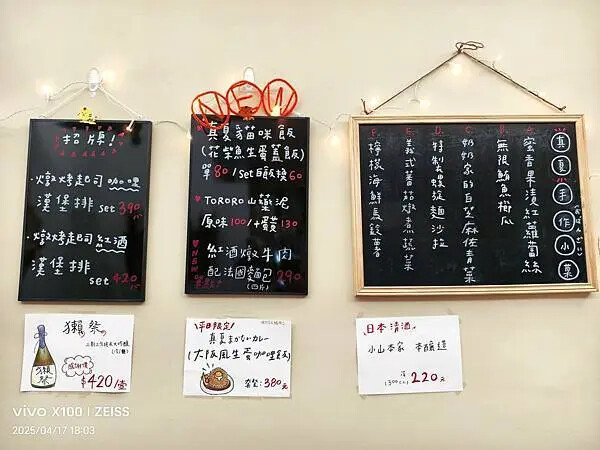 招牌!
·燉烤起司咖哩
漢堡排 set 390
·燉烤起司紅酒
漢堡排
set 420
NEW
真夏貓咪飯
(花柴魚生蛋蓋飯)
單80/set白飯換60
TORORO山藥泥
原味100/+蛋130
NEW
紅酒燉牛肉
配法國麵包 290
(四片)
真夏手作小菓
A. 蜜香果漬紅蘿蔔絲
B. 無限鮪魚櫛瓜
C. 奶奶家的白芝麻佐青菜
D. 特製螺旋麵沙拉
E. 義式蕃茄燉煮蔬菜
F. 檸檬海鮮馬鈴薯
獺祭
獺祭
感謝價
$420/壹
平日限定!
真夏まかないカレー
(大阪風生蛋咖哩飯)
套餐:380元
日本清酒
小山本家 本釀造
220元
vivo X100 | ZEISS
2025/04/17 18:03